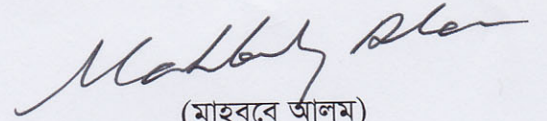 Mahbubey Alam
(মাহবুবে আলম)